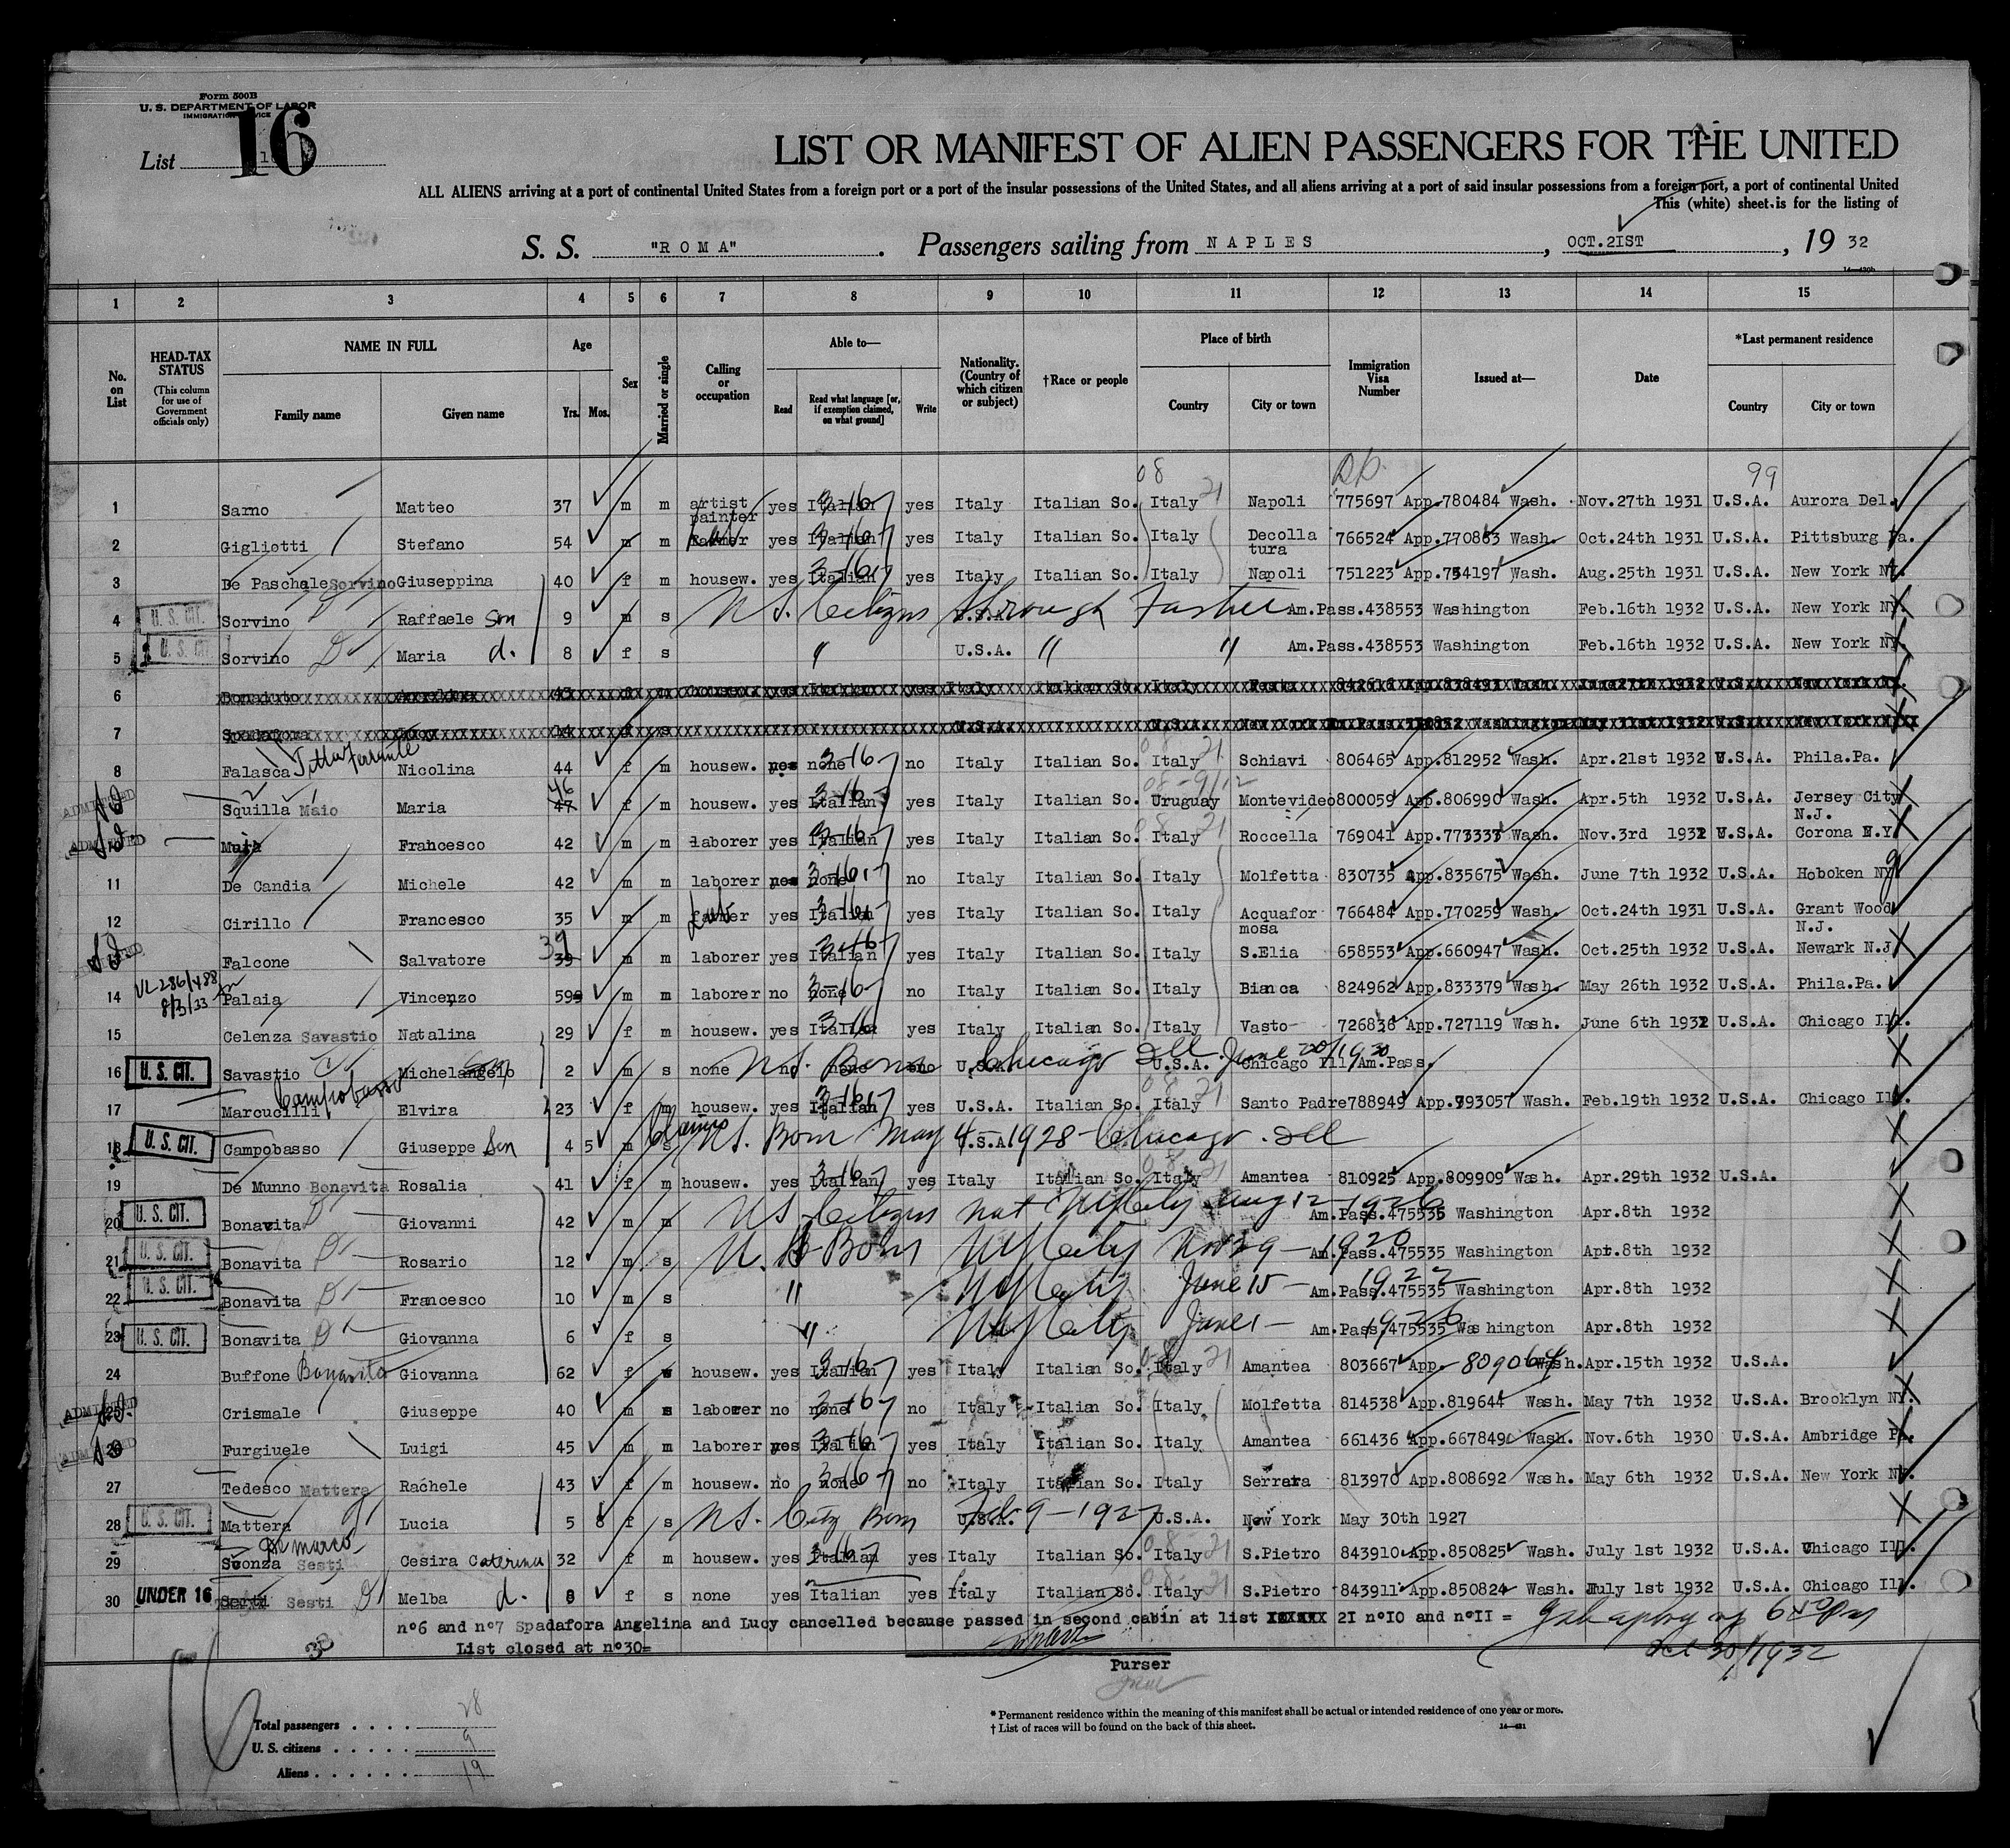 Form 500B
U. S. DEPARTMENT OF LABOR
IMMIGRATION SERVICE
List 16
LIST OR MANIFEST OF ALIEN PASSENGERS FOR THE UNITED
ALL ALIENS arriving at a port of continental United States from a foreign port or a port of the insular possessions of the United States, and all aliens arriving at a port of said insular possessions from a foreign port, a port of continental United
This (white) sheet is for the listing of
S. S. "ROMA". Passengers sailing from NAPLES, OCT.2IST, 19 32
1 2 3 4 5 6 7 8 9 10 11 12 13 14 15
No. on List
HEAD-TAX STATUS (This column for use of Government officials only)
NAME IN FULL Family name Given name
Age Yrs. Mos.
Sex
Married or single
Calling or occupation
Able to— Read Read what language [or, if exemption claimed, on what ground] Write
Nationality. (Country of which citizen or subject)
†Race or people
Place of birth Country City or town
Immigration Visa Number
Issued at—
Date
*Last permanent residence Country City or town
08 99
1 Sarno Matteo 37 m m artist painter yes Italian 3-16 yes Italy Italian So. Italy 21 Napoli 775697 App.780484 Wash. Nov.27th 1931 U.S.A. Aurora Del.
2 Gigliotti Stefano 54 m m lab yes Italian 3-16 yes Italy Italian So. Italy Decolla tura 766524 App.770863 Wash. Oct.24th 1931 U.S.A. Pittsburg Pa.
3 De Paschale Sorvino Giuseppina 40 f m housew. yes Italian 3-16 yes Italy Italian So. Italy Napoli 751223 App.754197 Wash. Aug.25th 1931 U.S.A. New York NY.
4 U. S. CIT. Sorvino Raffaele Son 9 m s U.S. Citizens through Father U.S.A. Am.Pass.438553 Washington Feb.16th 1932 U.S.A. New York NY.
5 U. S. CIT. Sorvino Maria d. 8 f s " U.S.A. " " Am.Pass.438553 Washington Feb.16th 1932 U.S.A. New York NY.
6 Bonaiuto Angelina 43 f m housew. yes Italian yes Italy Italian So. Italy 1932 U.S.A. New York NY.
7 Spadafora Lucy 14 f s U.S.A. U.S.A. New York Washington May 31st 1932 U.S.A. New York NY
8 Falasca Nicolina 44 f m housew. none 3-16 no Italy Italian So. Italy 21 Schiavi 806465 App.812952 Wash. Apr.21st 1932 U.S.A. Phila.Pa.
ADMITTED Squilla Maio Maria 46 47 f m housew. yes Italian 3-16 yes Italy Italian So. Uruguay Montevideo 800059 App.806990 Wash. Apr.5th 1932 U.S.A. Jersey City N.J.
ADMITTED Francesco 42 m m laborer yes Italian 3-16 yes Italy Italian So. Italy 21 Roccella 769041 App.773333 Wash. Nov.3rd 1931 U.S.A. Corona N.Y
11 De Candia Michele 42 m m laborer none 3-16 no Italy Italian So. Italy Molfetta 830735 App.835675 Wash. June 7th 1932 U.S.A. Hoboken NY
12 Cirillo Francesco 35 m m Lab yes Italian 3-16 yes Italy Italian So. Italy Acquafor mosa 766484 App.770259 Wash. Oct.24th 1931 U.S.A. Grant Wood N.J.
Falcone Salvatore 39 m m laborer yes Italian 3-16 yes Italy Italian So. Italy S.Elia 658553 App.660947 Wash. Oct.25th 1932 U.S.A. Newark N.J
14 VL 286/488 8/3/33 Palaia Vincenzo 59 m m laborer no none 3-16 no Italy Italian So. Italy Bianca 824962 App.833379 Wash. May 26th 1932 U.S.A. Phila.Pa.
15 Celenza Savastio Natalina 29 f m housew. yes Italian 3-16 yes Italy Italian So. Italy Vasto 726836 App.727119 Wash. June 6th 1932 U.S.A. Chicago Ill.
16 U. S. CIT. Savastio Michelangelo Son 2 m s none no none no U.S.A. U.S. Born Chicago Ill June 20/1930 U.S.A. Chicago Ill Am.Pass.
17 Marcucilli Campobasso Elvira 23 f m housew. yes Italian 3-16 yes U.S.A. Italian So. Italy 21 Santo Padre 788949 App.793057 Wash. Feb.19th 1932 U.S.A. Chicago Ill.
18 U. S. CIT. Campobasso Giuseppe Son 4 5 m s U.S. Born May 4 1928 Chicago. Ill U.S.A
19 De Munno Bonavita Rosalia 41 f m housew. yes Italian 3-16 yes Italy Italian So. Italy 21 Amantea 810925 App.809909 Wash. Apr.29th 1932 U.S.A.
20 U. S. CIT. Bonavita Giovanni 42 m m US Citizen Nat NYCity Aug 12-1926 Am.Pass.475535 Washington Apr.8th 1932
21 U. S. CIT. Bonavita Rosario 12 m s U.S Born NYCity Nov 29-1920 Am.Pass.475535 Washington Apr.8th 1932
22 U. S. CIT. Bonavita Francesco 10 m s " NYCity June 15-1922 Am.Pass.475535 Washington Apr.8th 1932
23 U. S. CIT. Bonavita Giovanna 6 f s " NYCity June 1-1926 Am.Pass.475535 Washington Apr.8th 1932
24 Buffone Bonavita Giovanna 62 f housew. yes Italian 3-16 yes Italy Italian So. Italy 21 Amantea 803667 App. 809064 Wash. Apr.15th 1932 U.S.A.
25 ADMITTED Crismale Giuseppe 40 m laborer no none 3-16 no Italy Italian So. Italy Molfetta 814538 App.819644 Wash. May 7th 1932 U.S.A. Brooklyn NY.
26 ADMITTED Furgiuele Luigi 45 m m laborer yes Italian 3-16 yes Italy Italian So. Italy Amantea 661436 App.667849 Wash. Nov.6th 1930 U.S.A. Ambridge Pa.
27 Tedesco Mattera Rachele 43 f m housew. no none 3-16 no Italy Italian So. Italy Serrara 813970 App.808692 Wash. May 6th 1932 U.S.A. New York NY.
28 U. S. CIT. Mattera Lucia 5 8 f s US. City Born Feb 9-1927 U.S.A. U.S.A. New York May 30th 1927
29 Sconza Sesti Cesira Caterina 32 f m housew. yes Italian 3-16 yes Italy Italian So. Italy 21 S.Pietro 843910 App.850825 Wash. July 1st 1932 U.S.A. Chicago Ill.
30 UNDER 16 Sesti Melba d. 8 f s none yes Italian yes Italy Italian So. Italy 21 S.Pietro 843911 App.850824 Wash. July 1st 1932 U.S.A. Chicago Ill.
n°6 and n°7 Spadafora Angelina and Lucy cancelled because passed in second cabin at list 2I n°IO and n°II =
List closed at n°30=
Oct 30/1932
Purser
Total passengers . . . . 28
U. S. citizens . . . . . 9
Aliens . . . . . . 19
* Permanent residence within the meaning of this manifest shall be actual or intended residence of one year or more.
† List of races will be found on the back of this sheet.